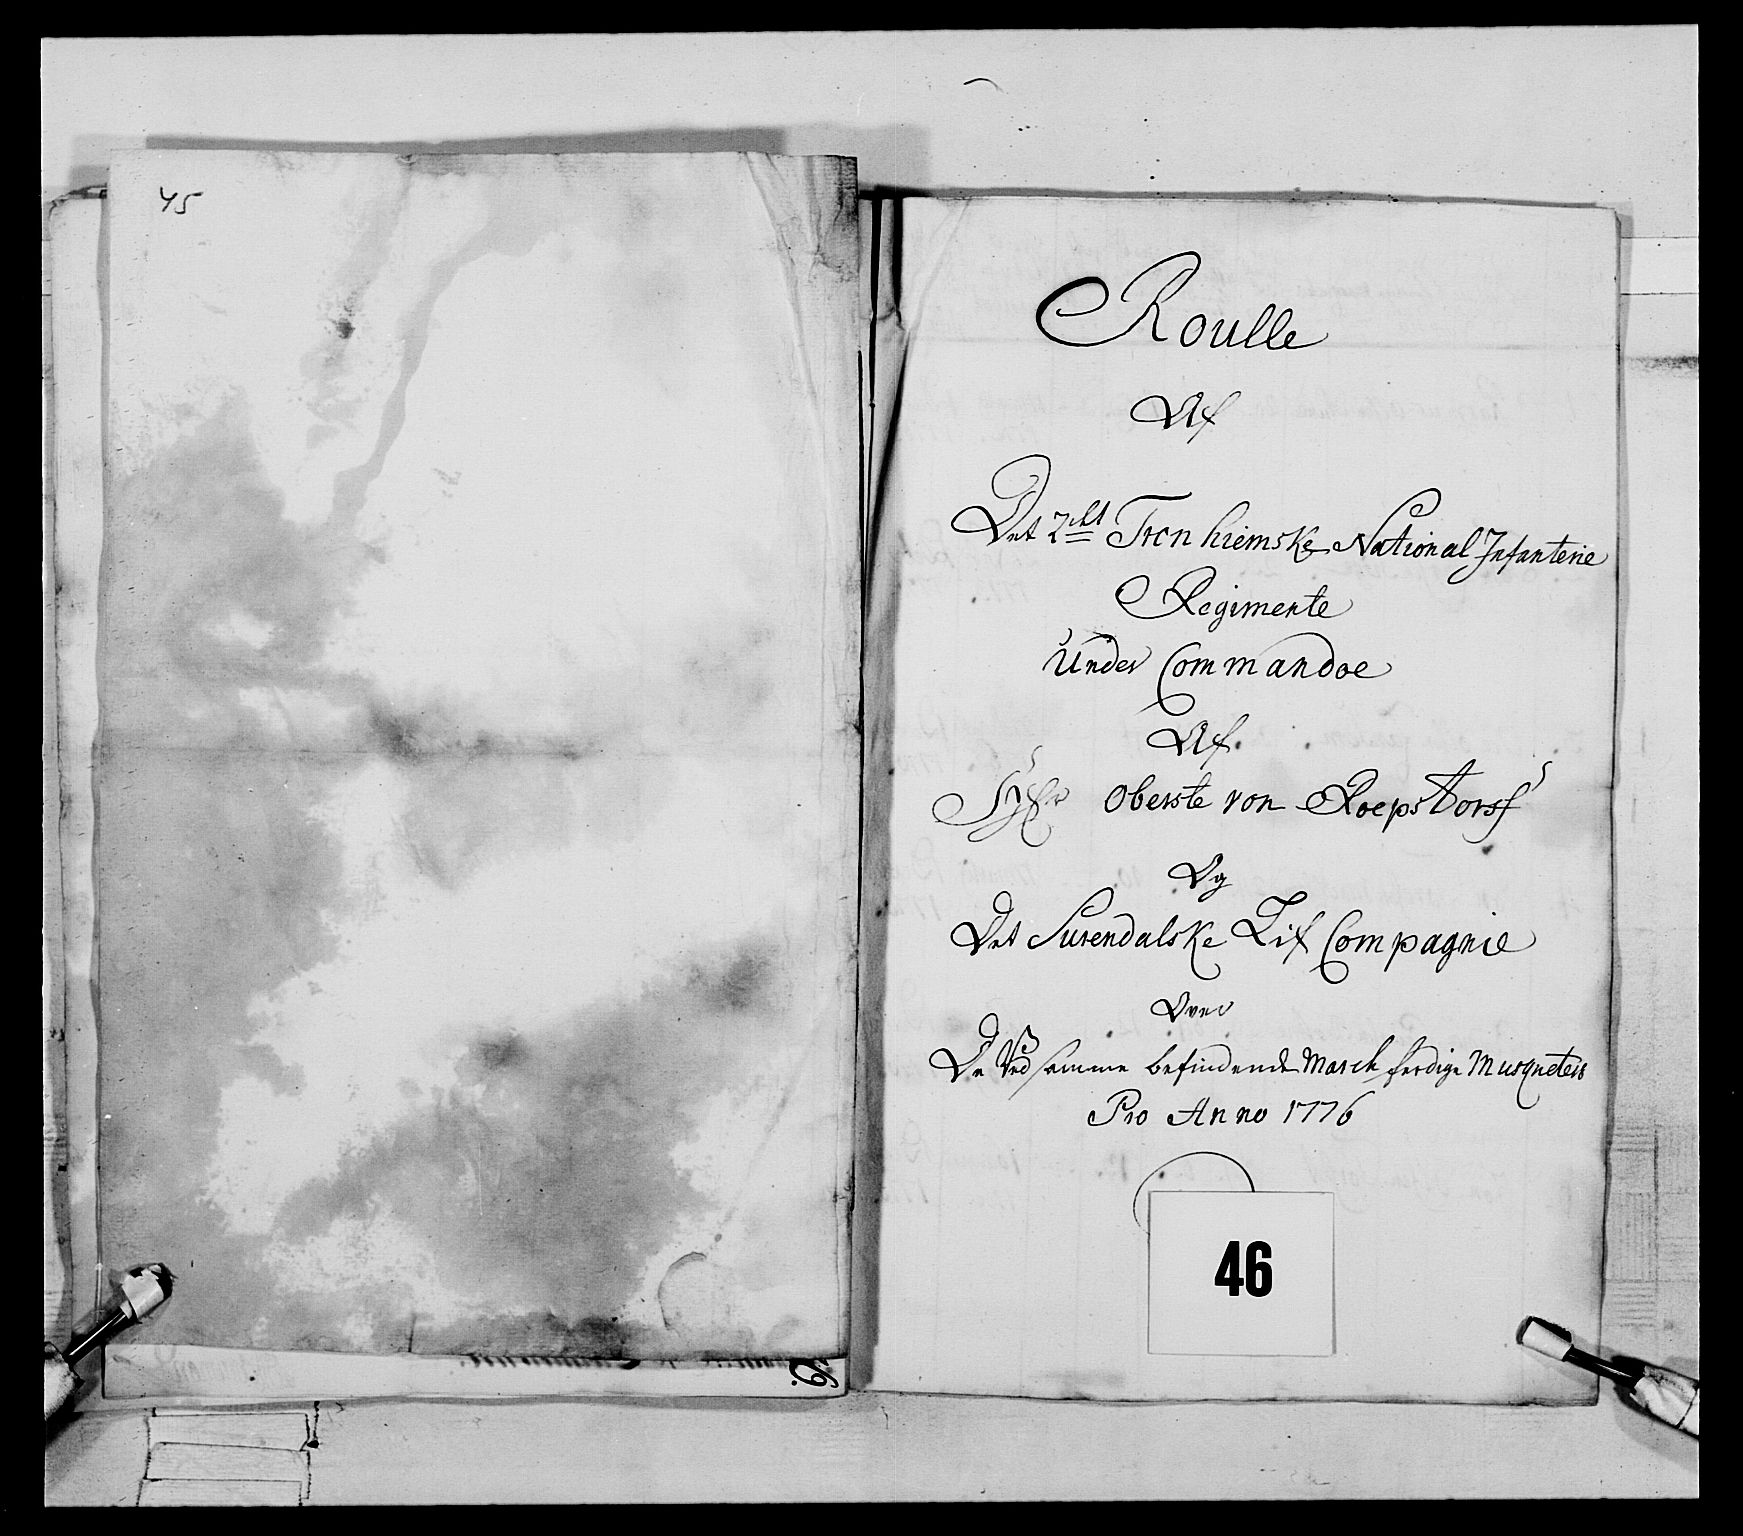 45
Roulle
Af
Det 2det Trcnhiemske National Infanterie
Regimente
Under Commandoe
Af
Oberste von Roepstorff
Og
Det Surendalske Lif Compagnie
Over
De Ved samme befindende March ferdige Musqueteis
Pro Anno 1776
46